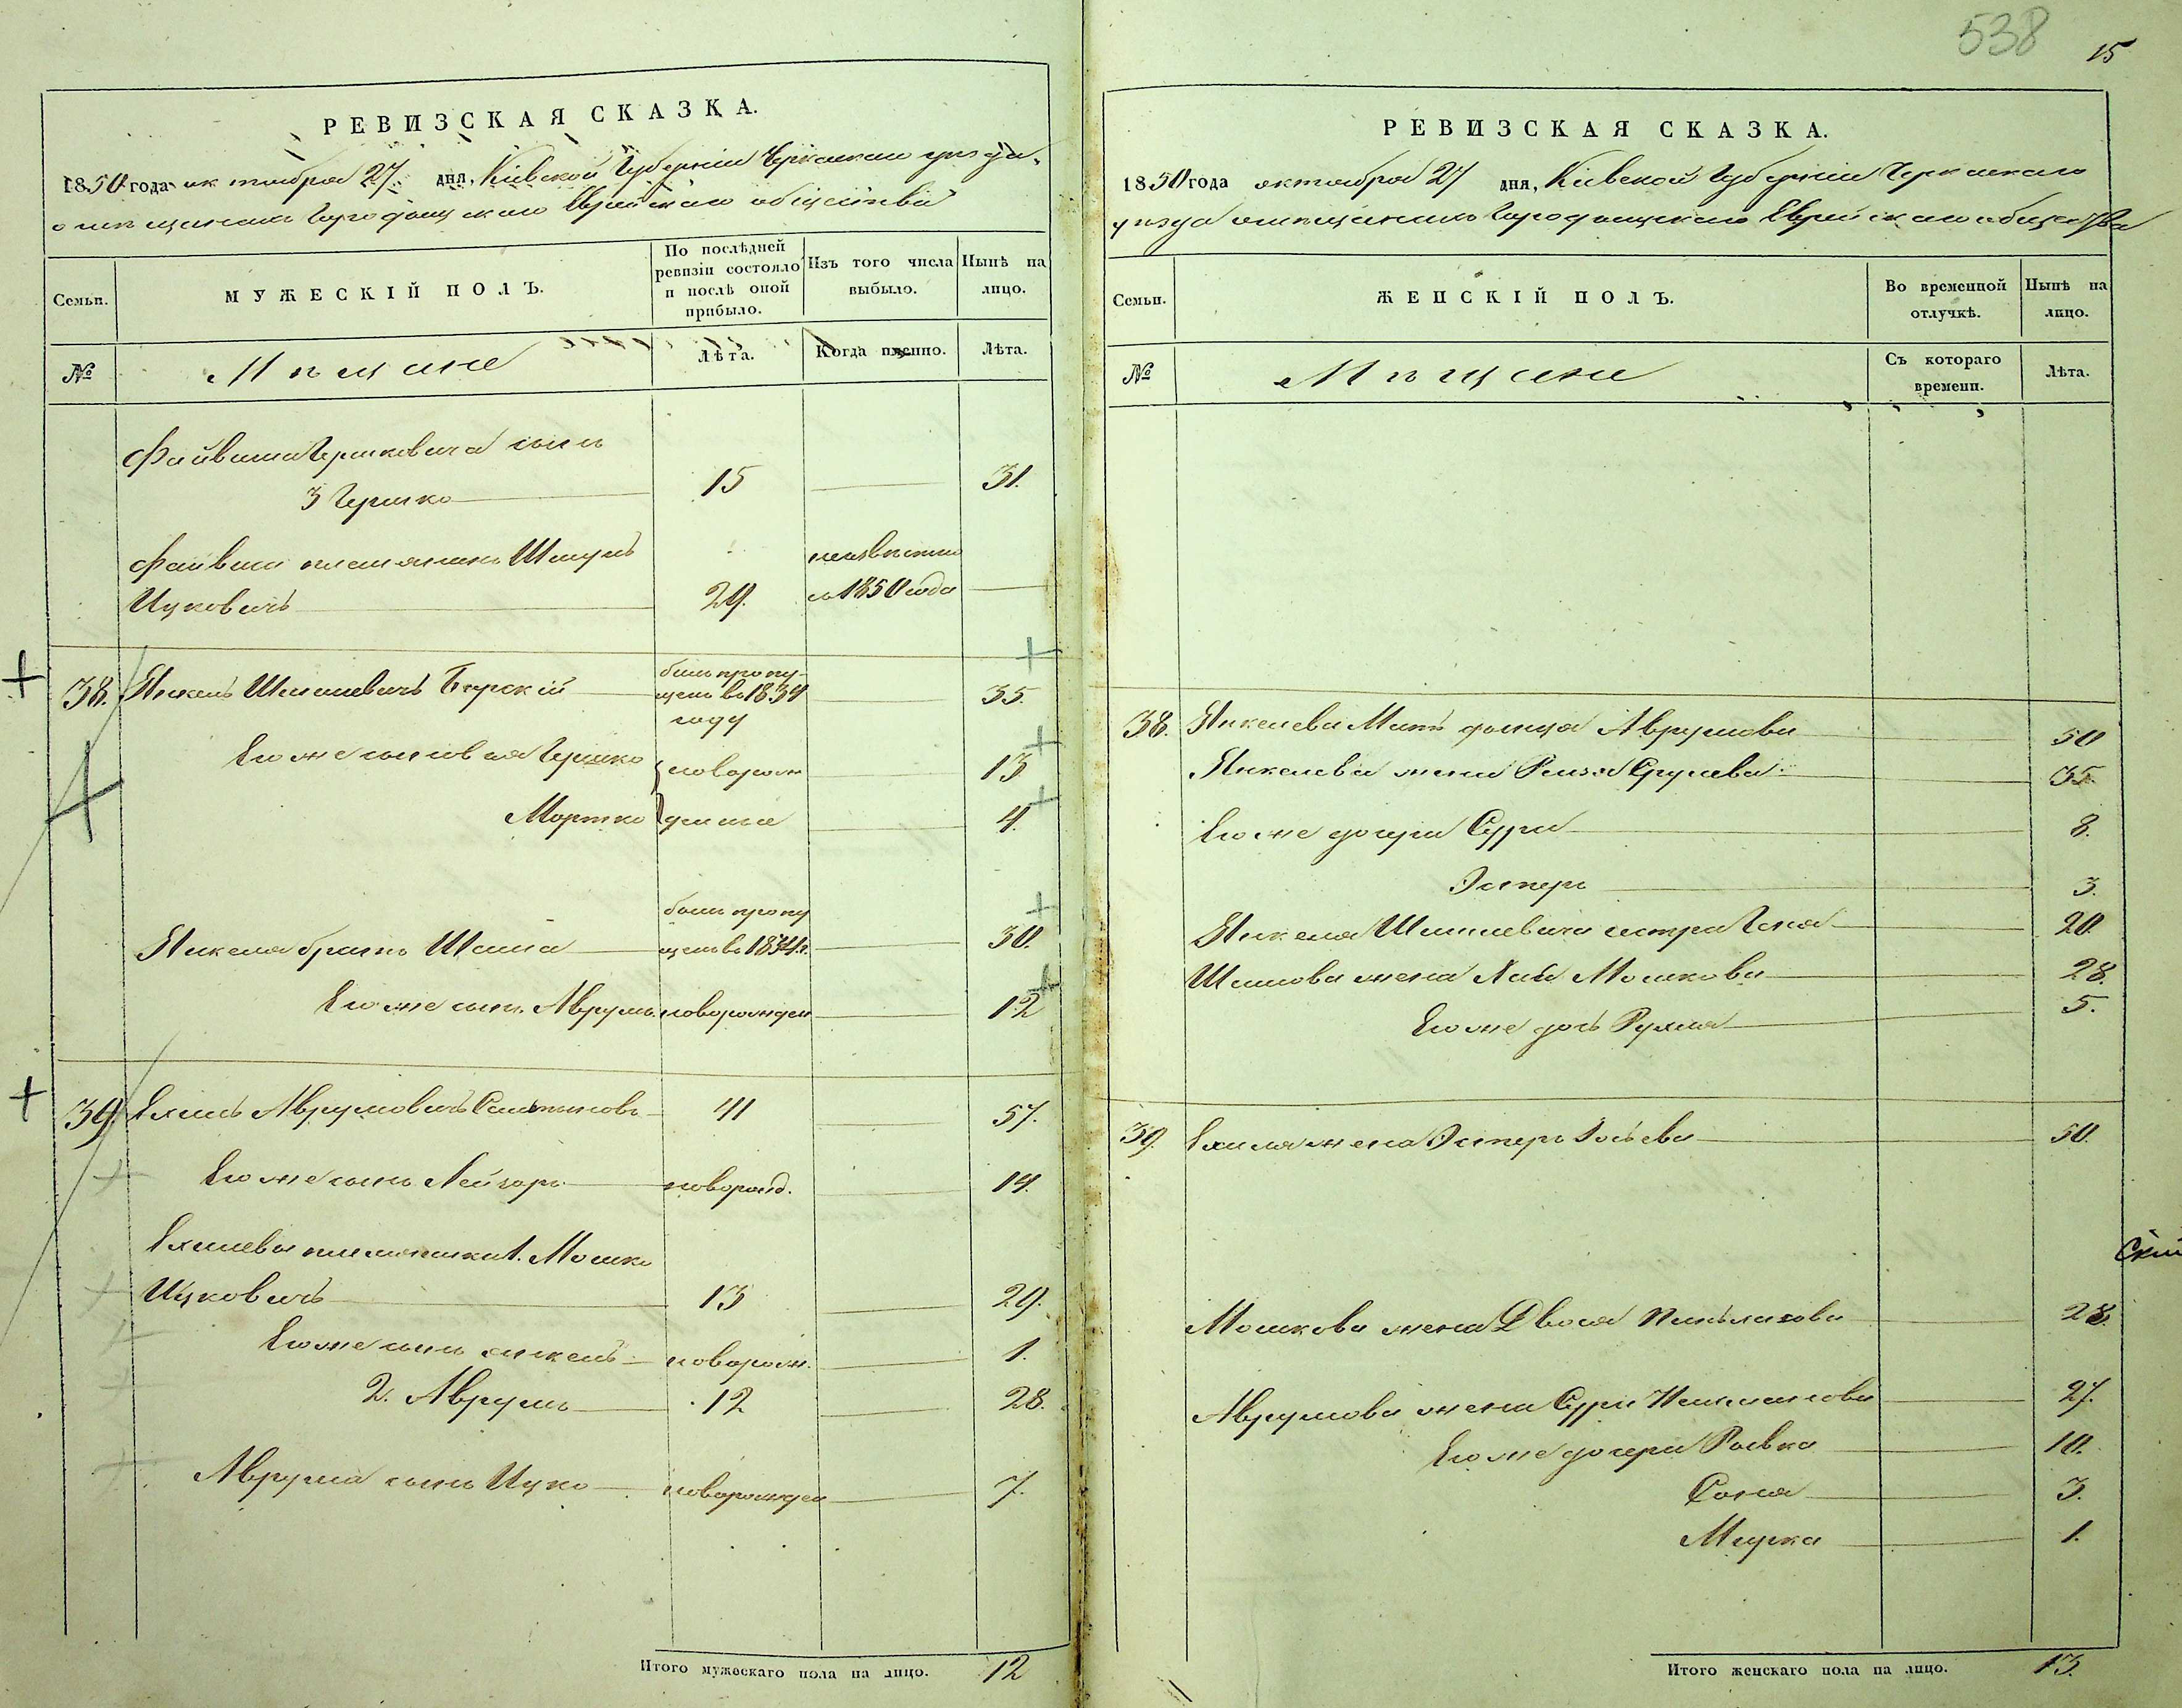 538
15
РЕВИЗСКАЯ СКАЗКА.
1850 года октября 27 дня, Кіевской Губерніи Черкаскаго уѣзда
о мѣщанахъ Городищскаго Еврейскаго общества
Семьи.
МУЖЕСКІЙ ПОЛЪ.
По послѣдней ревизіи состояло и послѣ оной прибыло.
Изъ того числа выбыло.
Нынѣ на лицо.
№
Мѣщане
Лѣта.
Когда именно.
Лѣта.
Файвиша Гершковича сынъ
3 Гершко 15 31.
Файвиша племянникъ Шмулъ неизвѣстно
Ицковичъ 29. съ 1850 года
38. Янкель Шмилевичъ Бѣрскій былъ пропущенъ въ 1834 году 35.
Его же сыновья Гершко новорож 13
Мортко денные 4.
Янкеля братъ былъ пропущенъ въ 1834 г. 30.
Его же сынъ Аврумъ новорожден 12
39. Ехиль Аврумовичъ 41 57.
Его же сынъ Лейзоръ новорожд. 14.
Ехилевы племянники 1. Мошко
Ицковичъ 13 29.
Его же сынъ Янкель новорож. 1.
2. Аврумъ 12 28.
Аврума сынъ Ицко новорожден 7.
Итого мужескаго пола на лицо. 12
РЕВИЗСКАЯ СКАЗКА.
1850 года октября 27 дня, Кіевской Губерніи Черкаскаго
уѣзда о мѣщанахъ Городищскаго Еврейскаго общества
Семьи.
ЖЕНСКІЙ ПОЛЪ.
Во временной отлучкѣ.
Нынѣ на лицо.
№
Мѣщане
Съ котораго времени.
Лѣта.
38. Янкелева Мать Аврумова 50
Янкелева жена Рейзя Срулева 35.
Его же дочери Сура 8.
Эстеръ 3.
Янкеля Шмилевича сестра Геня 20.
жена Хая Мошкова 28.
Его же дочь Рухля 5.
39. Ехиля жена Эстеръ 50.
Мошкова жена Двося 28.
Аврумова жена Сура 27.
Его же дочери Ривка 10.
Соня 3.
Мирка 1.
Итого женскаго пола на лицо. 13.